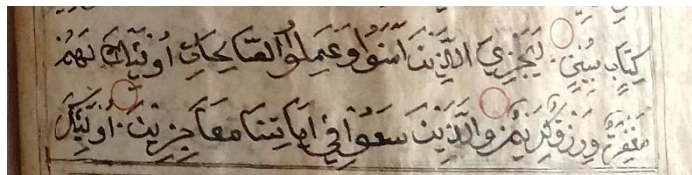 كِتَابٍ مُبِينٍ لِيَجْزِيَ الَّذِينَ آمَنُوا وَعَمِلُوا الصَّالِحَاتِ أُولَئِكَ لَهُمْ
مَغْفِرَةٌ وَرِزْقٌ كَرِيمٌ وَالَّذِينَ سَعَوْا فِي آيَاتِنَا مُعَاجِزِينَ أُولَئِكَ